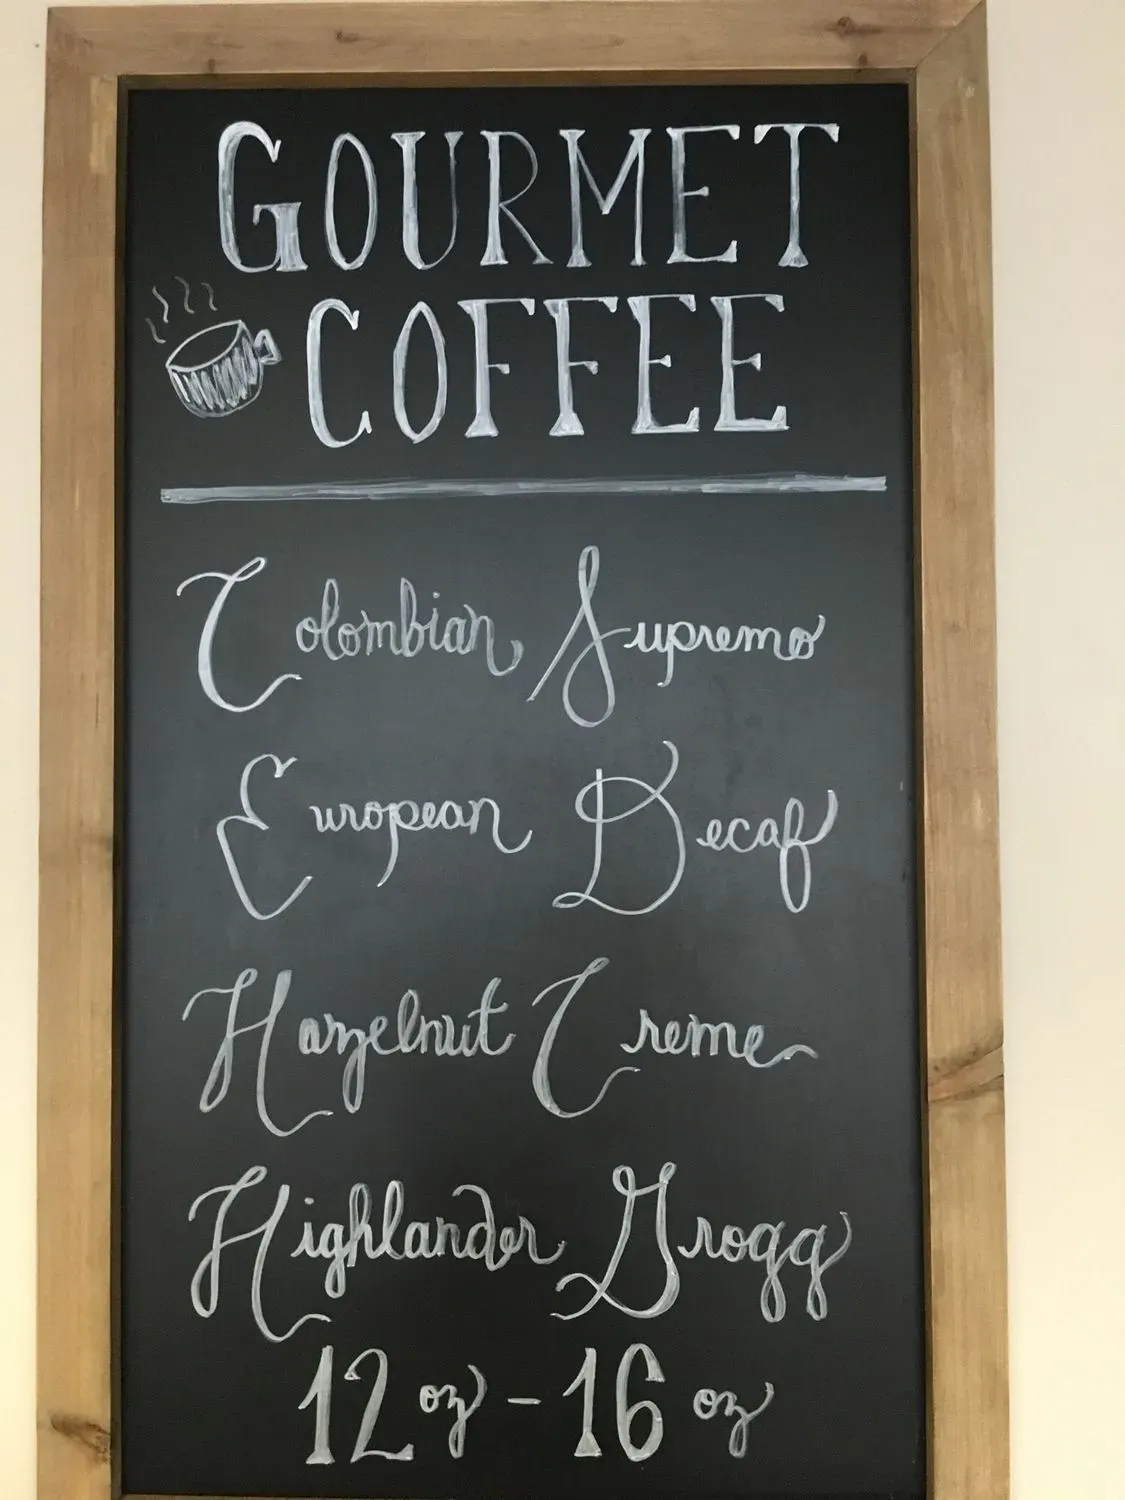 GOURMET
COFFEE
Colombian Supremo
European Decaf
Hazelnut Creme
Highlander Grogg
12 oz - 16 oz